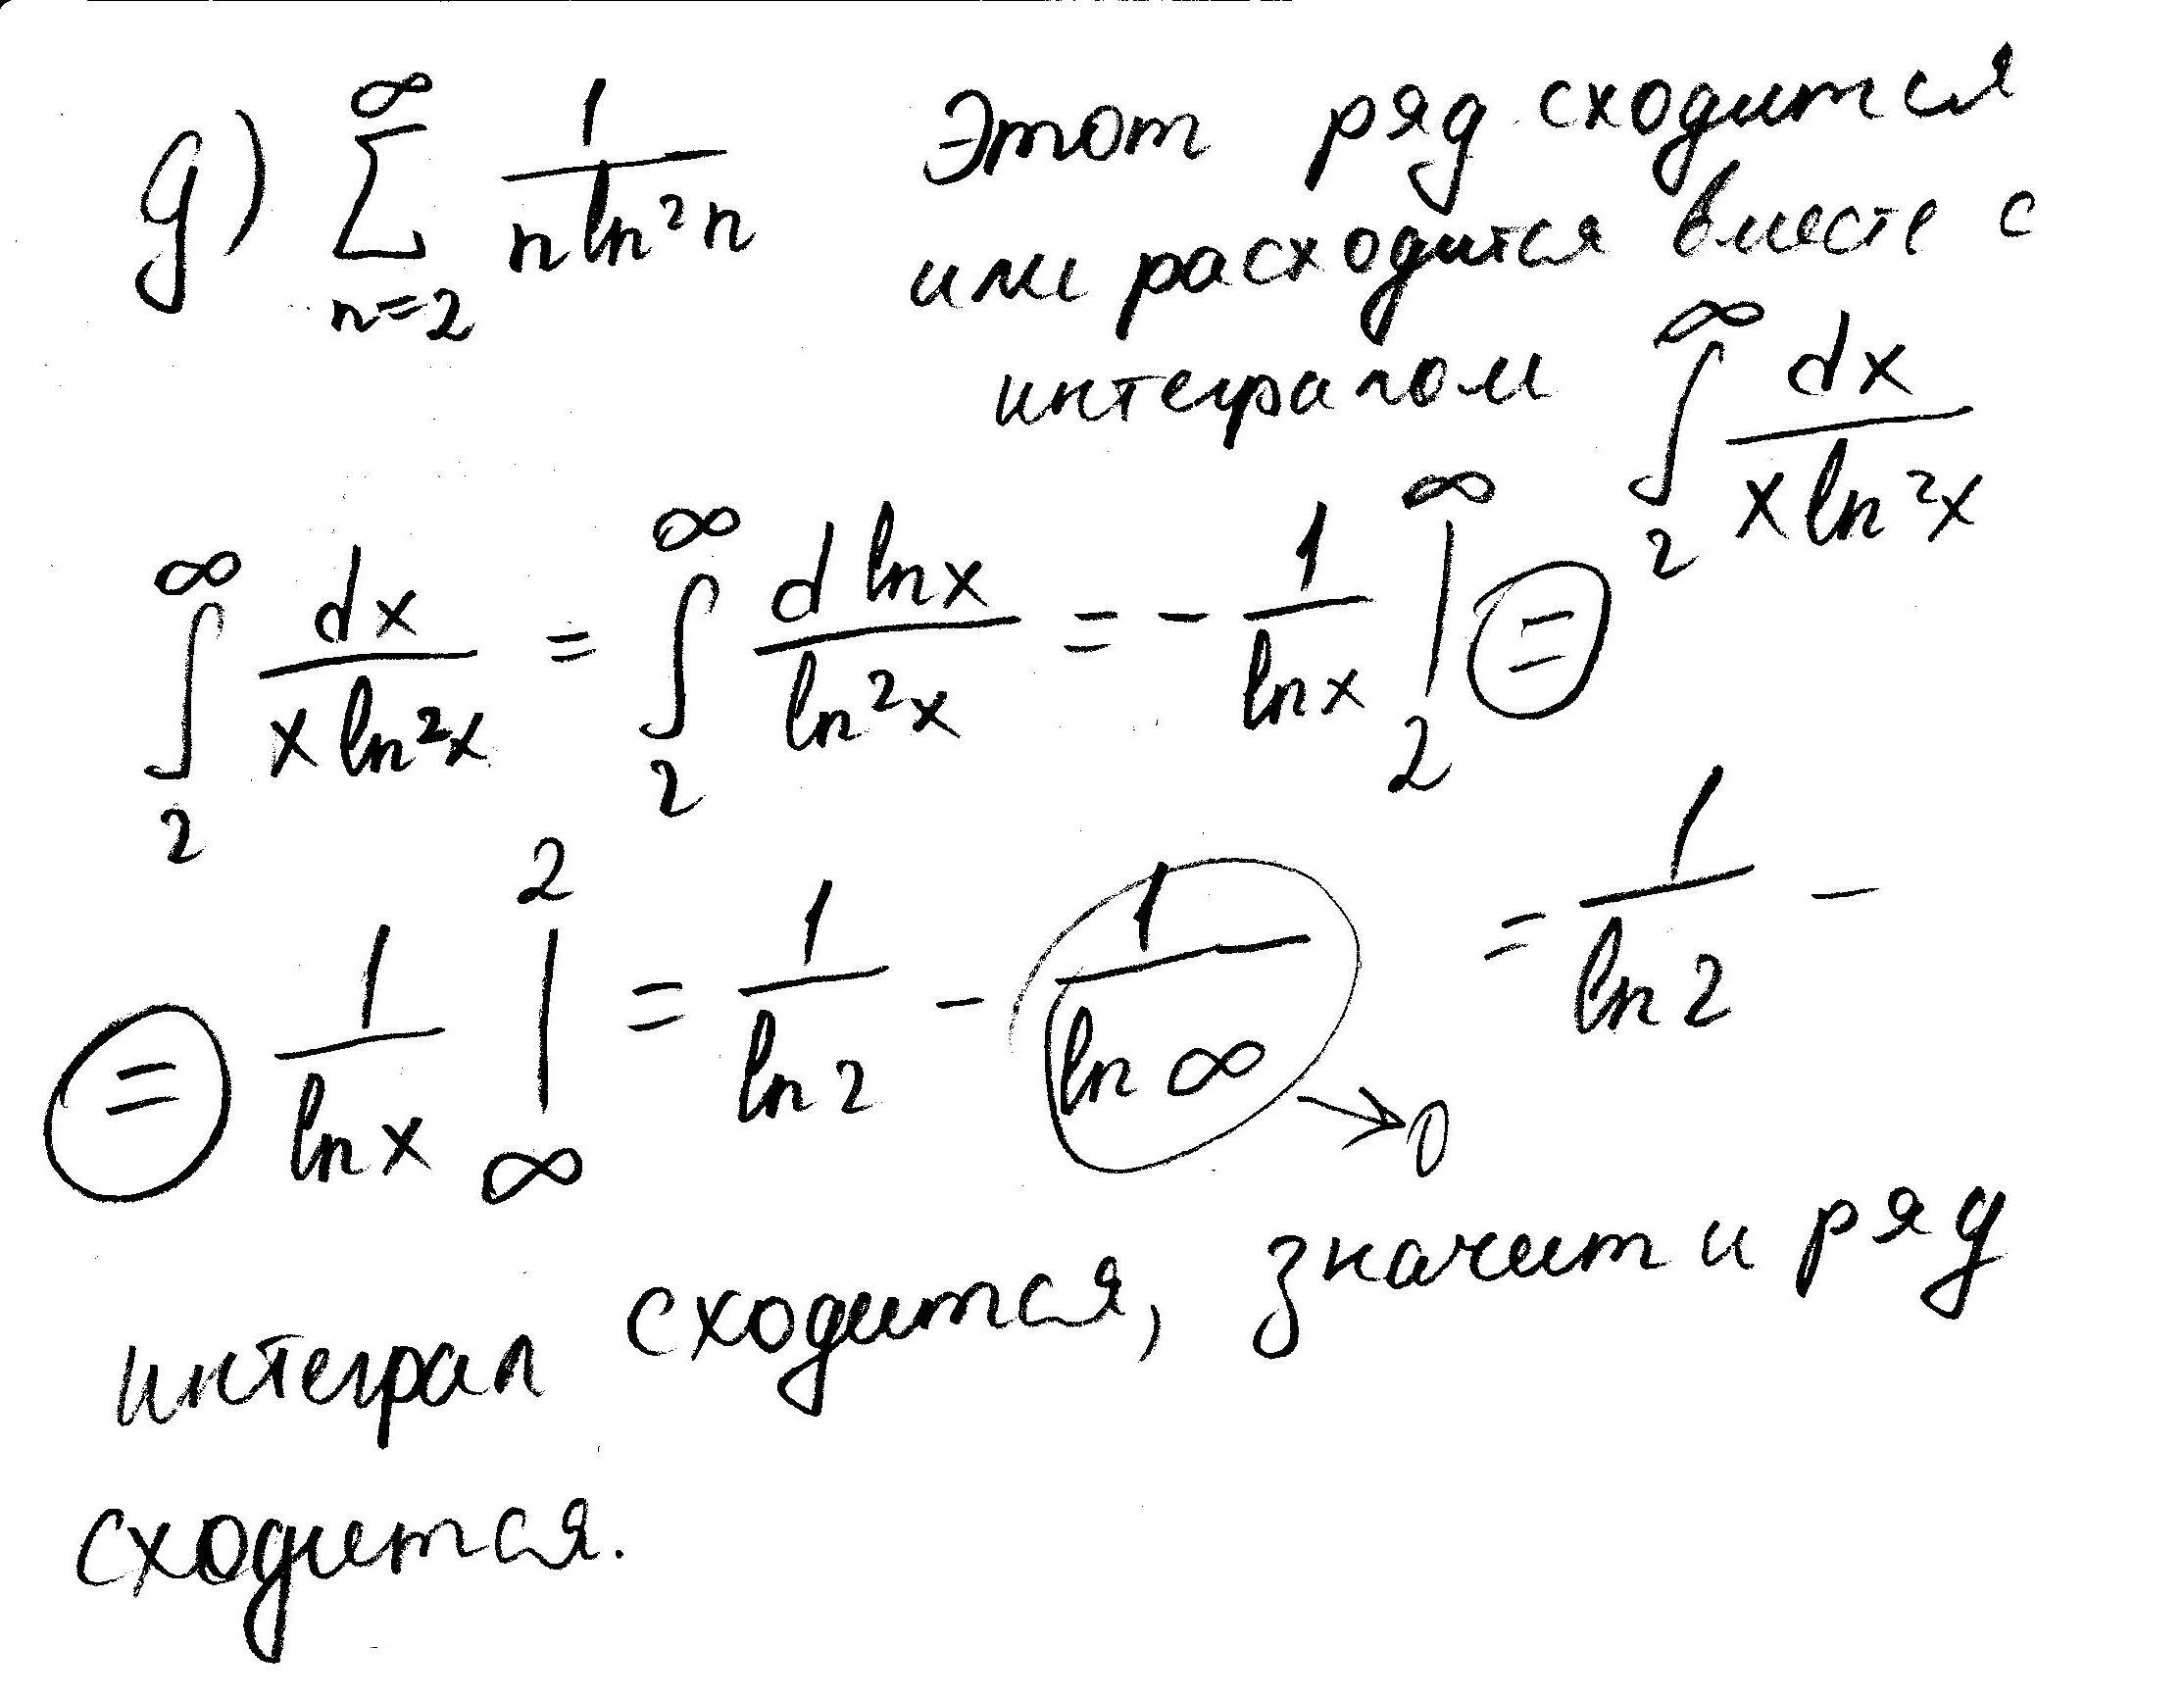 д) ∑_{n=2}^{∞} 1/(n ln²n) Этот ряд сходится
или расходится вместе с
интегралом ∫_2^∞ dx/(x ln²x)
∫_2^∞ dx/(x ln²x) = ∫_2^∞ d lnx/ln²x = - 1/lnx |_2^∞ =
= 1/lnx |_∞^2 = 1/ln2 - 1/ln∞ → 0 = 1/ln2 -
интеграл сходится, значит и ряд
сходится.